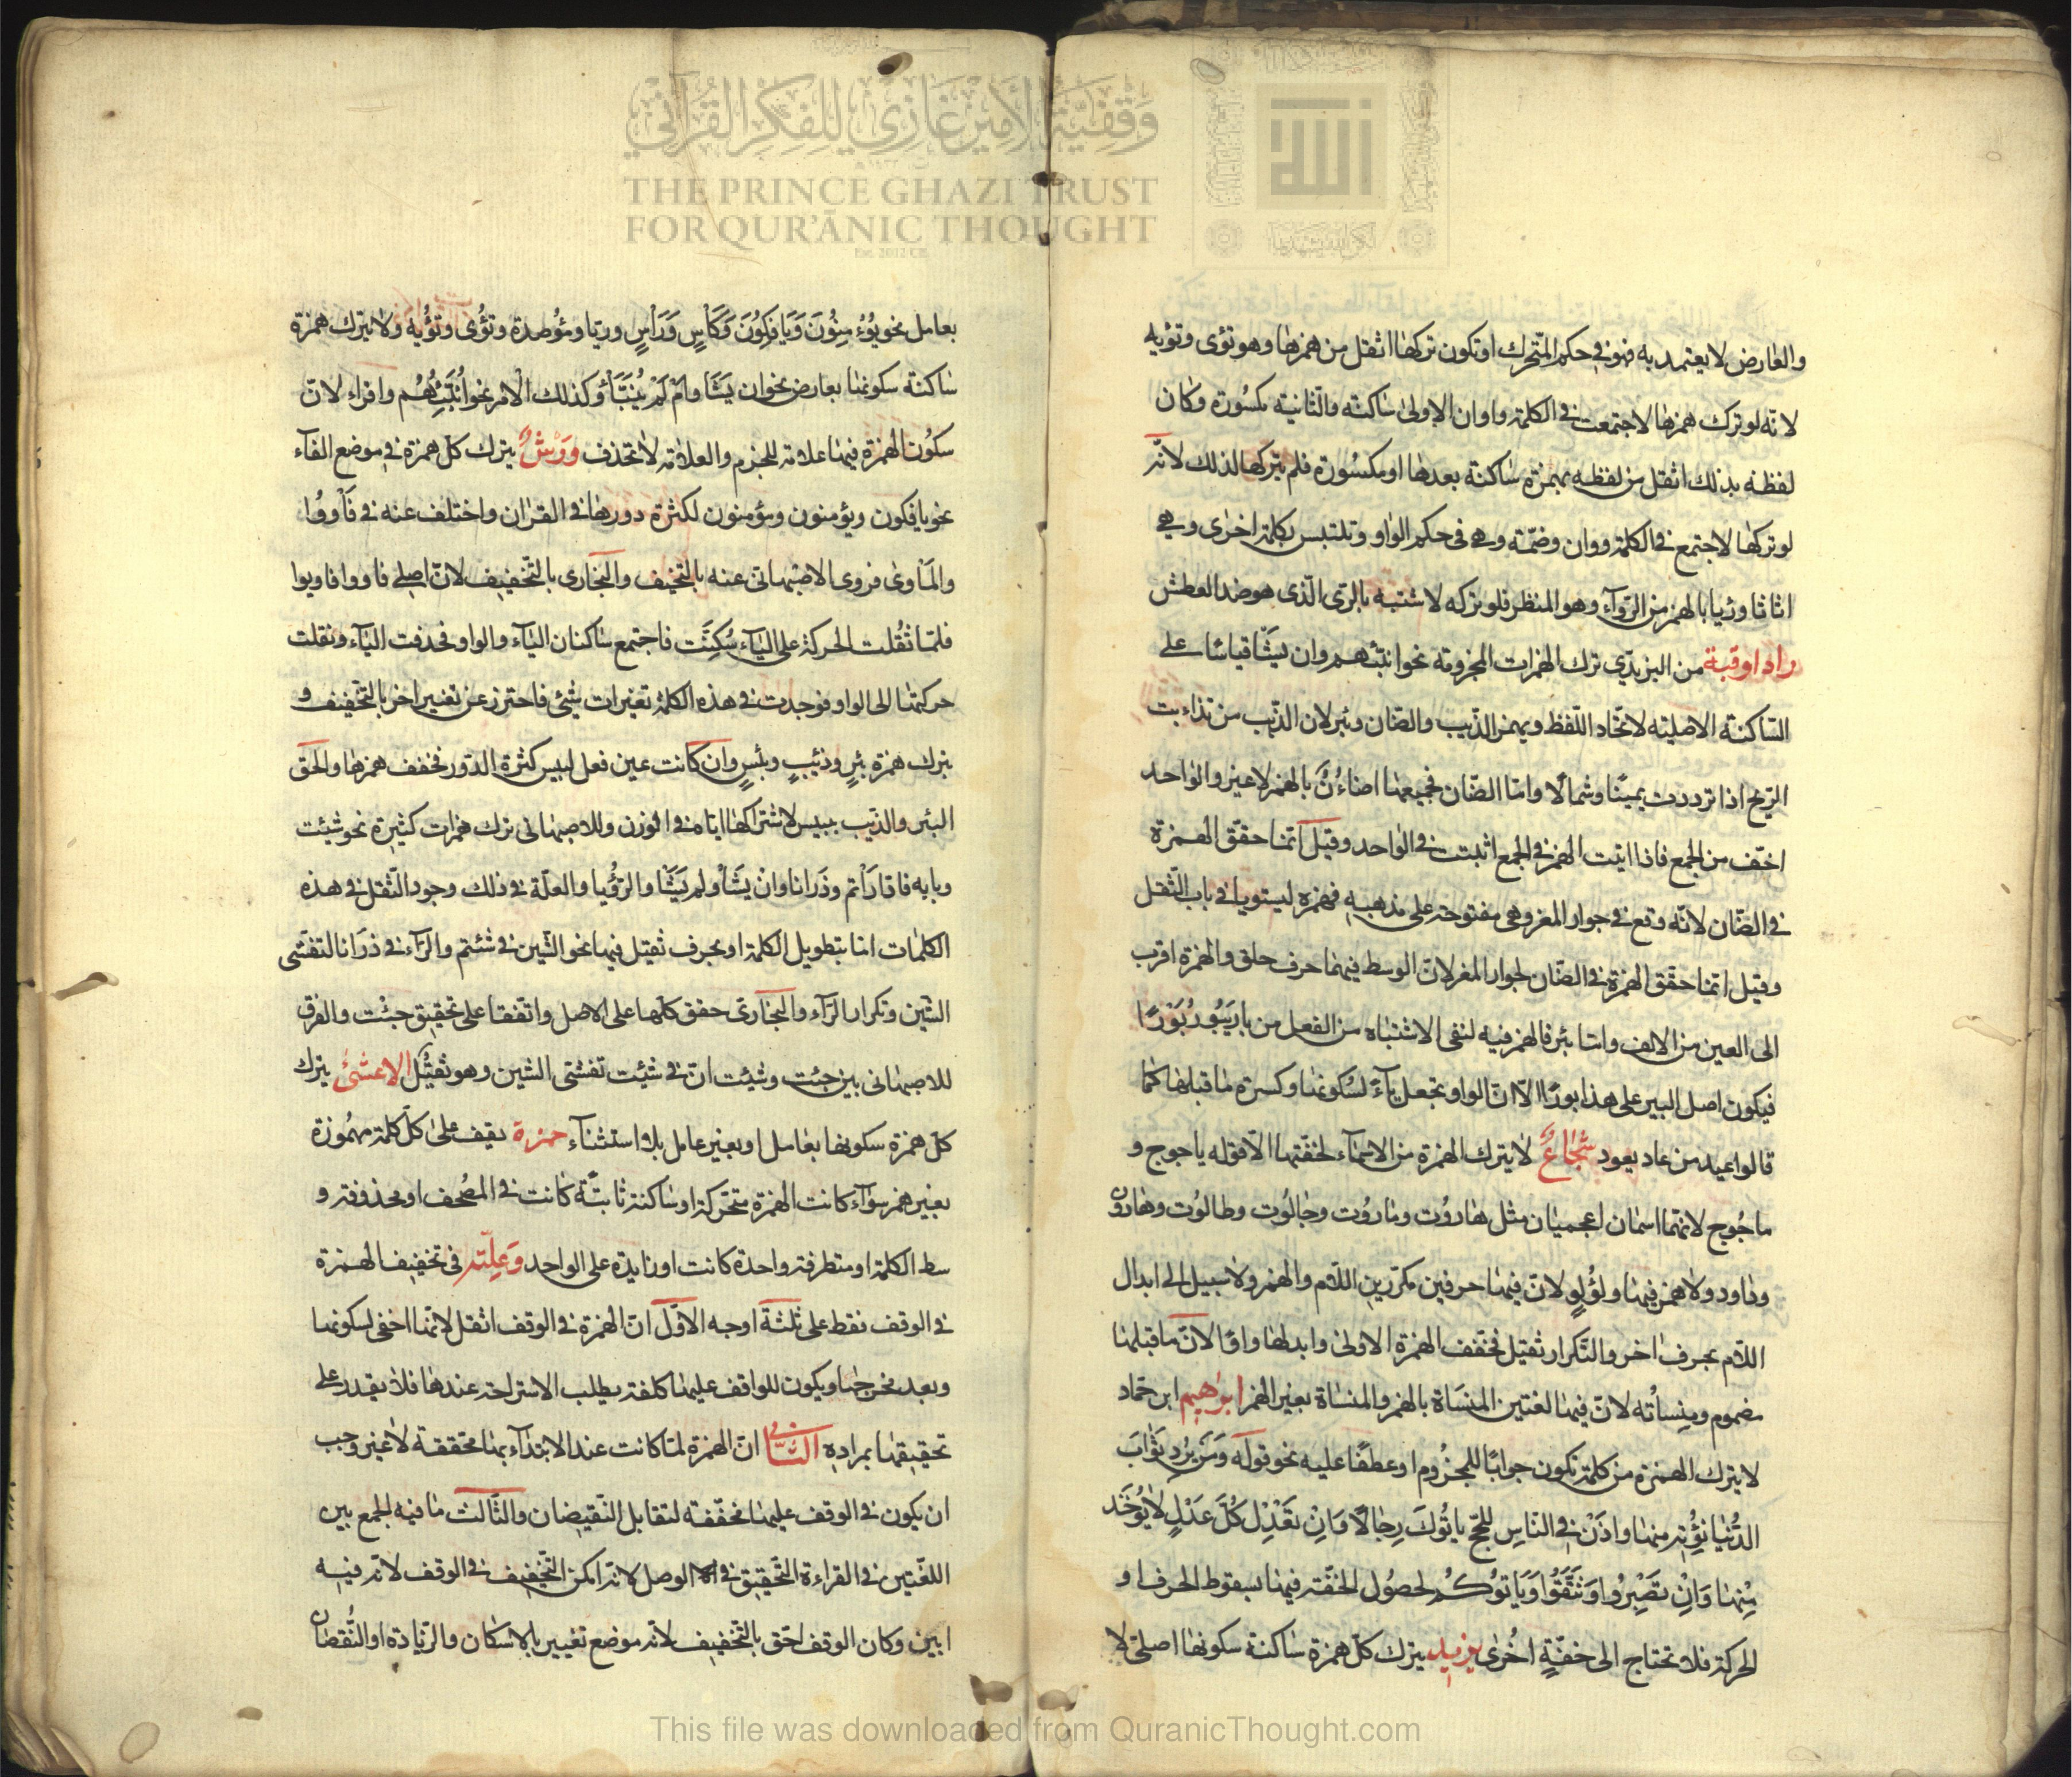 وقفية الأمير غازي للفكر القرآني
THE PRINCE GHAZI TRUST
FOR QUR'ĀNIC THOUGHT
والعارض لا يعتمد به فهو في حكم المتحرك او تكون تركها اثقل من همزها وهو تؤى وتؤيه
لانه لو ترك همزها لاجتمعت في الكلمة واوان الاولى ساكنة والثانية مكسورة وكان
لفظه بذلك اثقل من لفظه بهمزة ساكنة بعدها او مكسورة فلم يتركها لذلك لانه
لو تركها لاجتمع في الكلمة ووان وضمة وهي في حكم الواو وتلتبس بكلمة اخرى وهي
اثاثا ورئيا بالهمز من الروآء وهو المنظر فلو تركه لاشتبه بالري الذي هو ضد العطش
راد اوقية من اليزيدي ترك الهمزات المجزومة نحو انبئهم وان يشأ قياسا على
الساكنة الاصلية لاتحاد اللفظ ويهمز الذيب والضان وبئر لان الذيب من تذاءبت
الريح اذا ترددت يمينا وشمالا واما الضان فجمعها اضاءن بالهمز لا غير والواحد
اخف من الجمع فاذا اثبت الهمز في الجمع اثبتت في الواحد وقيل انما حقق الهمزة
في الضان لانه وقع في جوار المعز وهي مفتوحة على مذهبه فهمزه ليستويا في باب الثقل
وقيل انما حقق الهمزة في الضان لجوار المعز لان الوسط فيهما حرف حلق والهمزة اقرب
الى العين من الالف واما بئر فالهمز فيه لنفى الاشتباه من الفعل من بار يبور بورا
فيكون اصل البير على هذا بورا الا ان الواو تجعل يآء لسكونها وكسرة ما قبلها كما
قالوا عيد من عاد يعود شجاع لا يترك الهمزة من الاسماء لخفتها الا قوله ياجوج و
ماجوج لانهما اسمان اعجميان مثل هاروت وماروت وجالوت وطالوت وهارون
وداود ولا همز فيها ولؤلؤ لان فيها حرفين مكررين اللام والهمز ولا سبيل الى ابدال
اللام بحرف اخر والتكرار ثقيل فخفف الهمزة الاولى وابدلها واوا لان ما قبلها
مضموم ومنسأته لان فيها لغتين المنسأة بالهمز والمنساة بغير الهمز ابراهيم ابن حماد
لا يترك الهمزة من كلمة تكون جوابا للمجزوم او عطفا عليه نحو قوله ومن يرد ثواب
الدنيا نؤته منها واذن في الناس للحج ياتوك رجالا وان تعدل كل عدل لا يؤخذ
منها وان تصبروا وتتقوا وياتوكم لحصول الخفة فيها بسقوط الحرف او
الحركة فلا تحتاج الى خفة اخرى يزيد يترك كل همزة ساكنة سكونها اصلي لا
بعامل نحو يؤمنون ويافكون وكاس وراس وريا ومؤصدة وتؤى وتؤيه ولا يترك همزة
ساكنة سكونها بعارض نحو ان يشا وام لم ينبأ وكذلك الامر نحو انبئهم واقراء لان
سكون الهمزة فيها علامة للجزم والعلامة لا تحذف وورش يترك كل همزة في موضع الفآء
نحو يافكون ويؤمنون ومؤمنون لكثرة دورها في القران واختلف عنه في فأووا
والمأوى فروى الاصبهاني عنه بالتخفيف والبخاري بالتخفيف لان اصل فاووا فاويوا
فلما ثقلت الحركة على اليآء سكنت فاجتمع ساكنان اليآء والواو فحذفت اليآء ونقلت
حركتها الى الواو فوجدت في هذه الكلمة تغيرات شيئ فاحترز عن تغيير اخر بالتخفيف و
بترك همزة بئر وذئب وبئس وان كانت عين فعل لبيس كثرة الدور فخفف همزها والحق
البئر والذيب ببيس لاشتراكها اياه في الوزن وللاصبهاني ترك همزات كثيرة نحو شيئت
وبابه فاقارأتم وذرانا وان يشأ ولم يشا والرؤيا والعلة في ذلك وجود الثقل في هذه
الكلمات اما بتطويل الكلمة او بحرف ثقيل فيها نحو الشين في شئتم والرآء في ذرانا لتفشى
الشين وتكرار الرآء والبخاري حقق كلها على الاصل واتفقا على تحقيق جئت والفرق
للاصبهاني بين جئت وشيئت ان في شيئت تفشى الشين وهو ثقيل الاعشى يترك
كل همزة سكونها بعامل او بغير عامل بلا استثنآء حمزة يقف على كل كلمة مهموزة
بغير همز سوآء كانت الهمزة متحركة او ساكنة ثابتة كانت في المصحف او محذوفة و
سط الكلمة او متطرفة واحدة كانت او زايدة على الواحد وعلته في تخفيف الهمزة
في الوقف نقط على ثلثة اوجه الاول ان الهمزة في الوقف اثقل لانها اخفى لسكونها
وبعد مخرجها ويكون للواقف عليها كلفة يطلب الاستراحة عندها فلا يقدر على
تحقيقها بمراده الثاني ان الهمزة لما كانت عند الابتدآء بها محققة لا غير وجب
ان يكون في الوقف عليها مخففة لتقابل النقيضان والثالث ما فيه الجمع بين
اللغتين في القراءة التحقيق في الوصل لانه امكن التخفيف في الوقف لانه فيه
ابين وكان الوقف احق بالتخفيف لانه موضع تغيير بالاسكان والزيادة او النقصان
This file was downloaded from QuranicThought.com